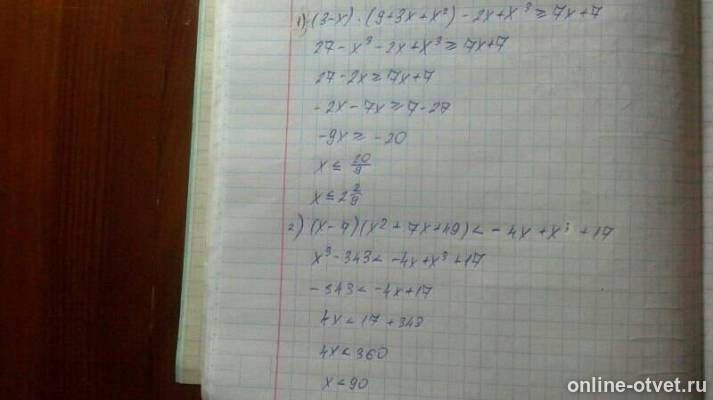 1) (3-x)·(9+3x+x²)-2x+x³≥7x+7
27-x³-2x+x³≥7x+7
27-2x≥7x+7
-2x-7x≥7-27
-9x≥-20
x≤20/9
x≤2 2/9
2) (x-7)(x²+7x+49)<-4x+x³+17
x³-343<-4x+x³+17
-343<-4x+17
4x<17+343
4x<360
x<90
online-otvet.ru